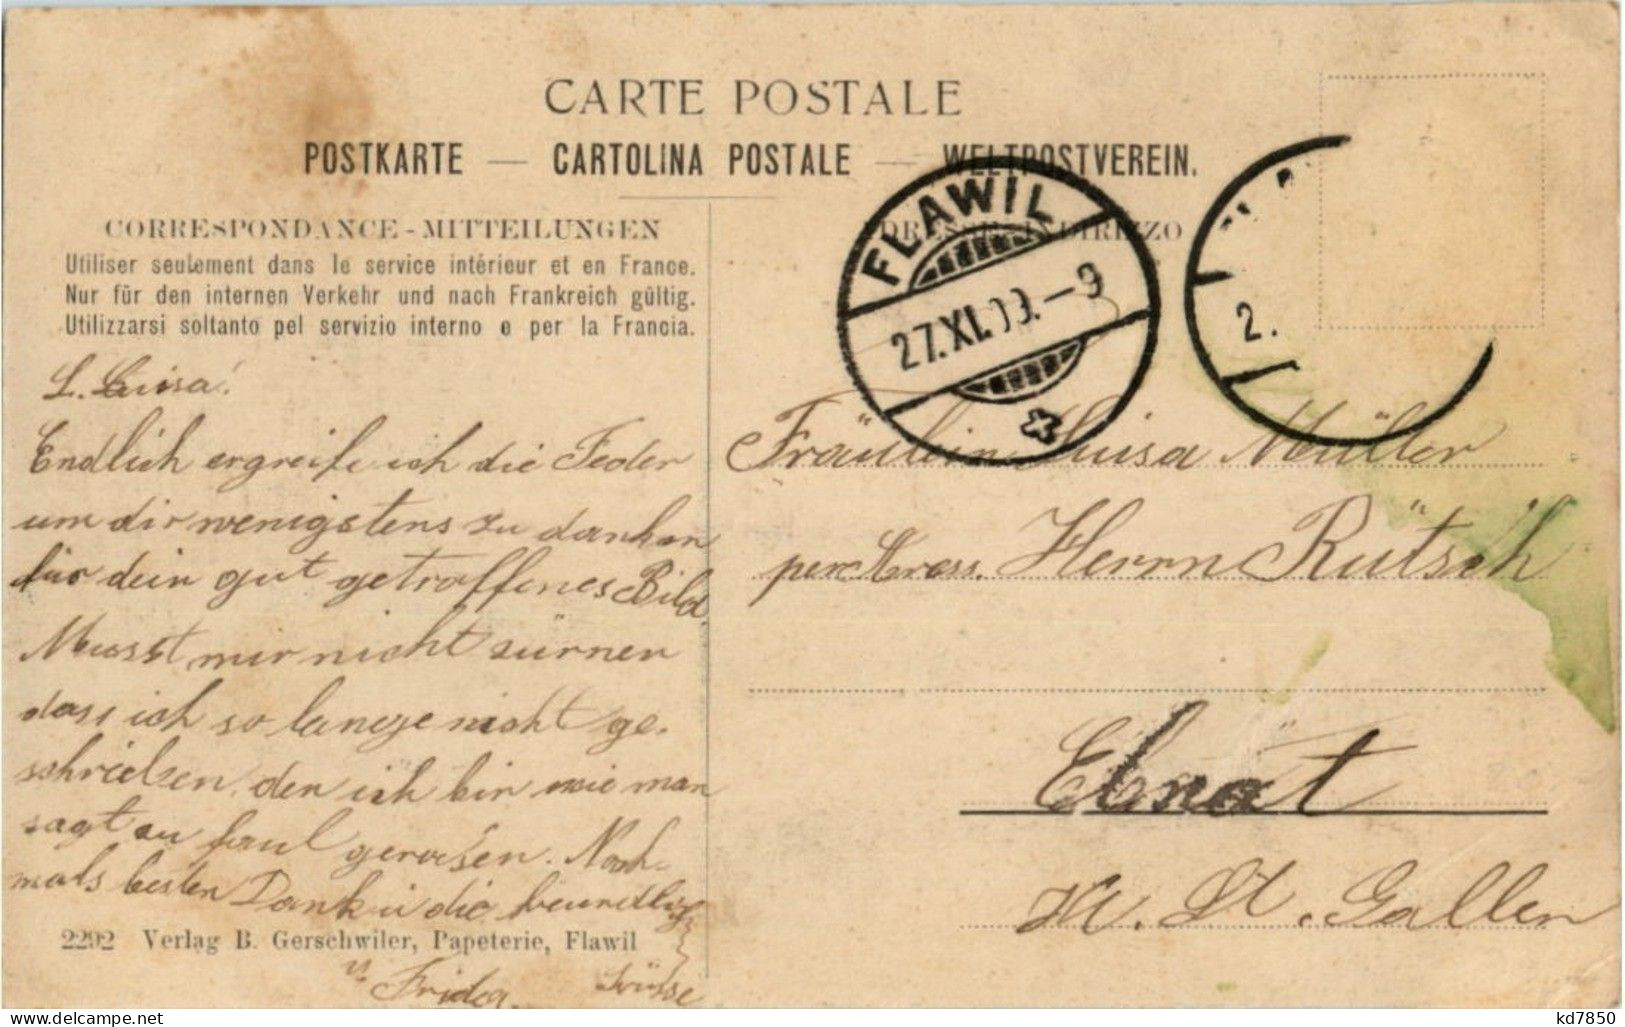 CARTE POSTALE
POSTKARTE — CARTOLINA POSTALE — WELTPOSTVEREIN.
CORRESPONDANCE - MITTEILUNGEN
Utiliser seulement dans le service intérieur et en France.
Nur für den internen Verkehr und nach Frankreich gültig.
Utilizzarsi soltanto pel servizio interno e per la Francia.
L. Luisa!
Endlich ergreife ich die Feder
um dir wenigstens zu danken
für dein gut getroffenes Bild.
Musst mir nicht zürnen
dass ich so lange nicht ge-
schrieben, den ich bin wie man
sagt zu faul gewesen. Noch-
mals besten Dank u die freundlichs
Grüsse
v. Frieda.
2292 Verlag B. Gerschwiler, Papeterie, Flawil
INDIRIZZO
FLAWIL
27.XI.09.-9
2.
Fräulein Luisa Müller
per Herrn Rütsch
Ebnat
Kt. St. Gallen
kd7850